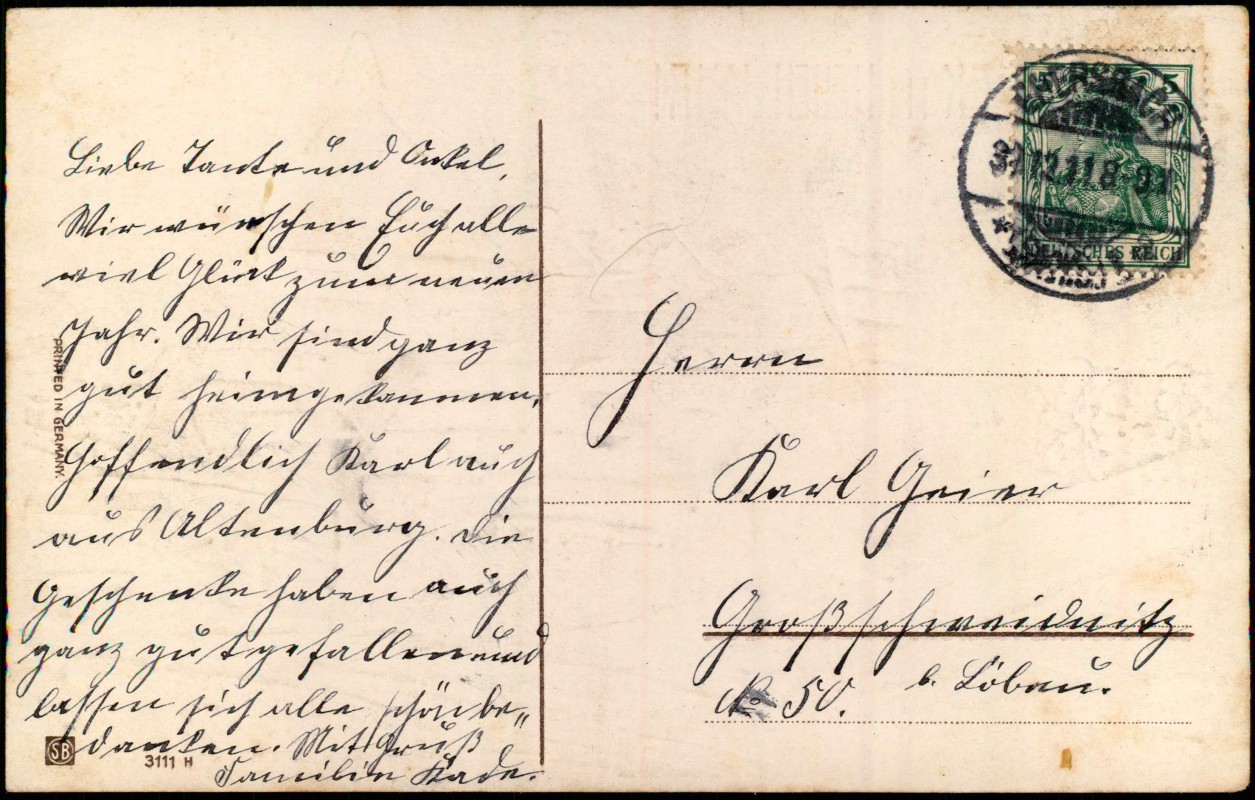 Liebe Tante und Onkel,
Wir wünschen Euch alle
viel Glück zum neuen
Jahr. Wir sind ganz
gut heimgekommen.
Hoffendlich Karl auch
aus Altenburg. Die
Geschenke haben auch
ganz gut gefallen und
lassen sich alle schön be„
danken. Mit Gruß
Familie Kade.
PRINTED IN GERMANY.
SB
3111 H
5 5
DEUTSCHES REICH
EBERSBACH
31.12.11.8-9V
Herrn
Karl Geier
Großschweidnitz
No 50. b. Löbau.